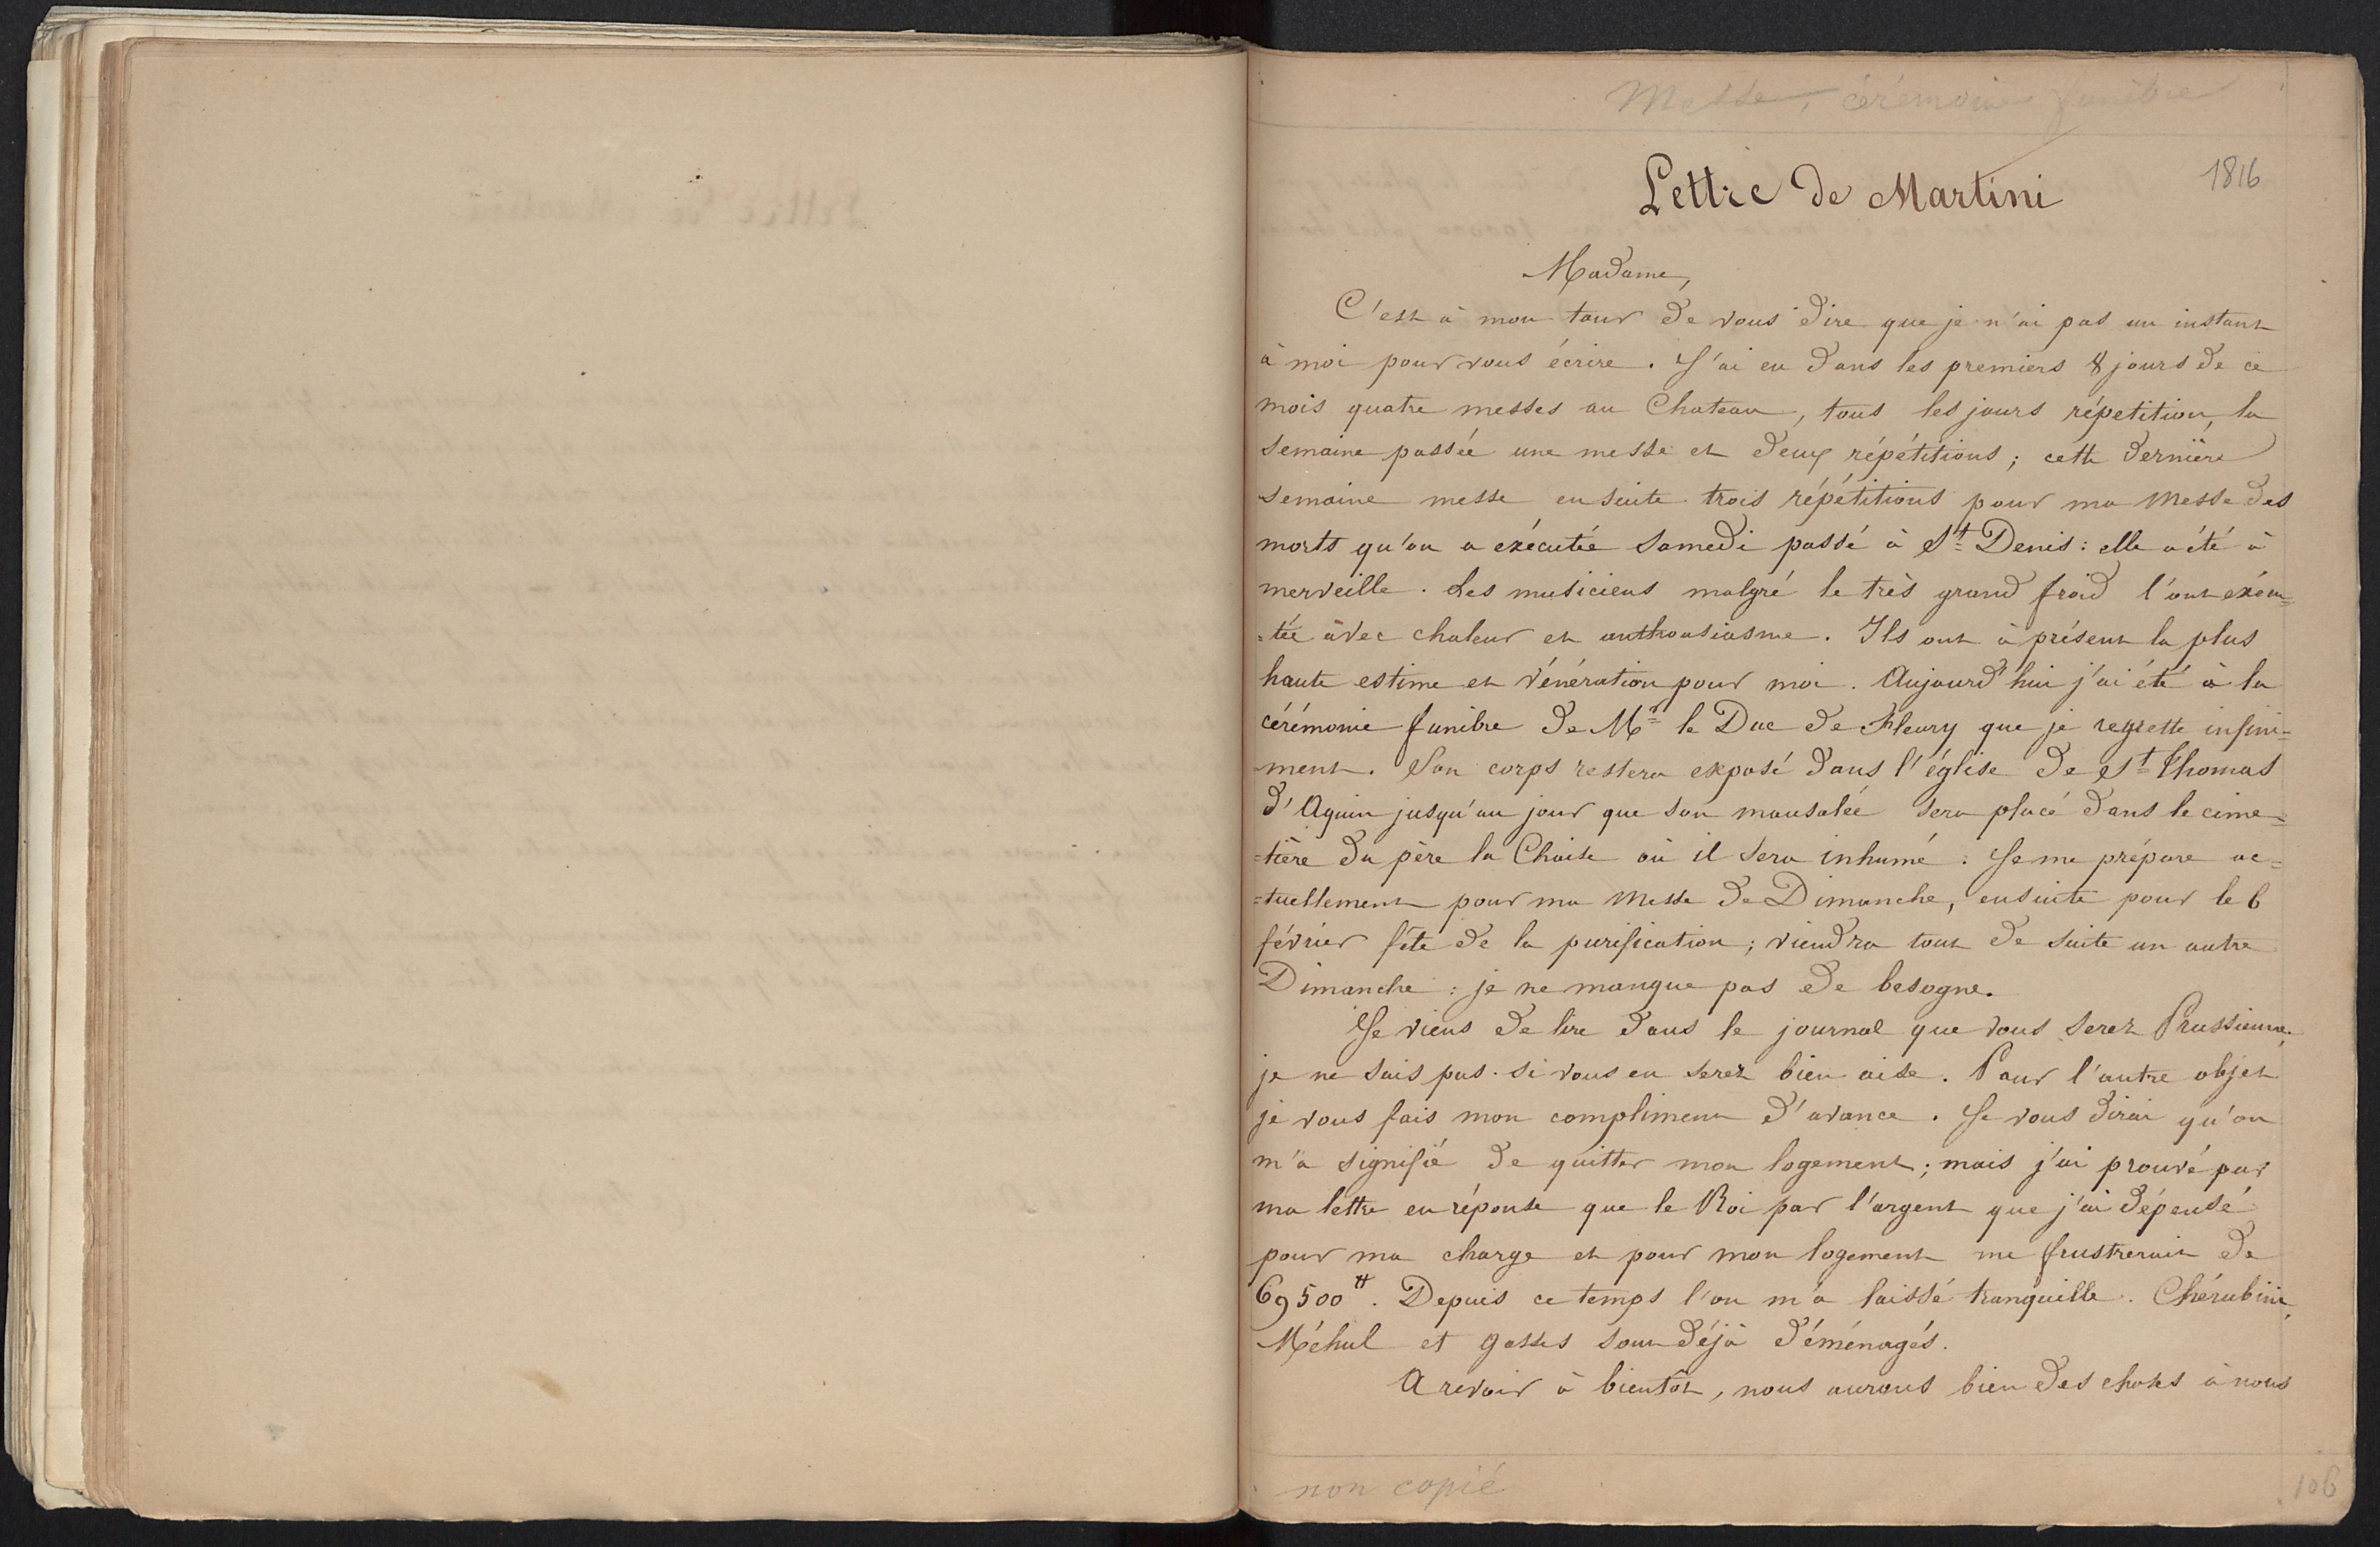 Messe, cérémonie funèbre
1816
Lettre de Martini
Madame,
C'est à mon tour de vous dire que je n'ai pas un instant
à moi pour vous écrire. J'ai eu dans les premiers 8 jours de ce
mois quatre messes au Chateau, tous les jours répetition, la
semaine passée une messe et deux répétitions; cette dernière
semaine messe ensuite trois répétitions pour ma Messe des
morts qu'on a exécutée samedi passé à St= Denis: elle a été à
merveille. Les musiciens malgré le très grand froid l'ont exécu=
=tée avec chaleur et anthousiasme. Ils ont à présent la plus
haute estime et vénération pour moi. Aujourd'hui j'ai été à la
cérémonie funèbre de Mr= le Duc de Fleury que je regrette infini=
=ment. Son corps restera exposé dans l'église de St= Thomas
d'Aquin jusqu'au jour que son mausolée sera placé dans le cime=
=tière du père la Chaise où il sera inhumé. Je me prépare ac=
=tuellement pour ma Messe de Dimanche, ensuite pour le 6
février fête de la purification; viendra tout de suite un autre
Dimanche: je ne manque pas de besogne.
Je viens de lire dans le journal que vous serez Prussienne.
je ne sais pas si vous en serez bien aise. Pour l'autre objet
je vous fais mon compliment d'avance. Je vous dirai qu'on
m'a signifié de quitter mon logement; mais j'ai prouvé par
ma lettre en réponse que le Roi par l'argent que j'ai dépensé
pour ma charge et pour mon logement me frustrerait de
69500 tt. Depuis ce temps l'on m'a laissé tranquille. Chérubini,
Méhul et gosses sont déjà déménagés.
A revoir à bientôt, nous aurons bien des choses à nous
non copié
106